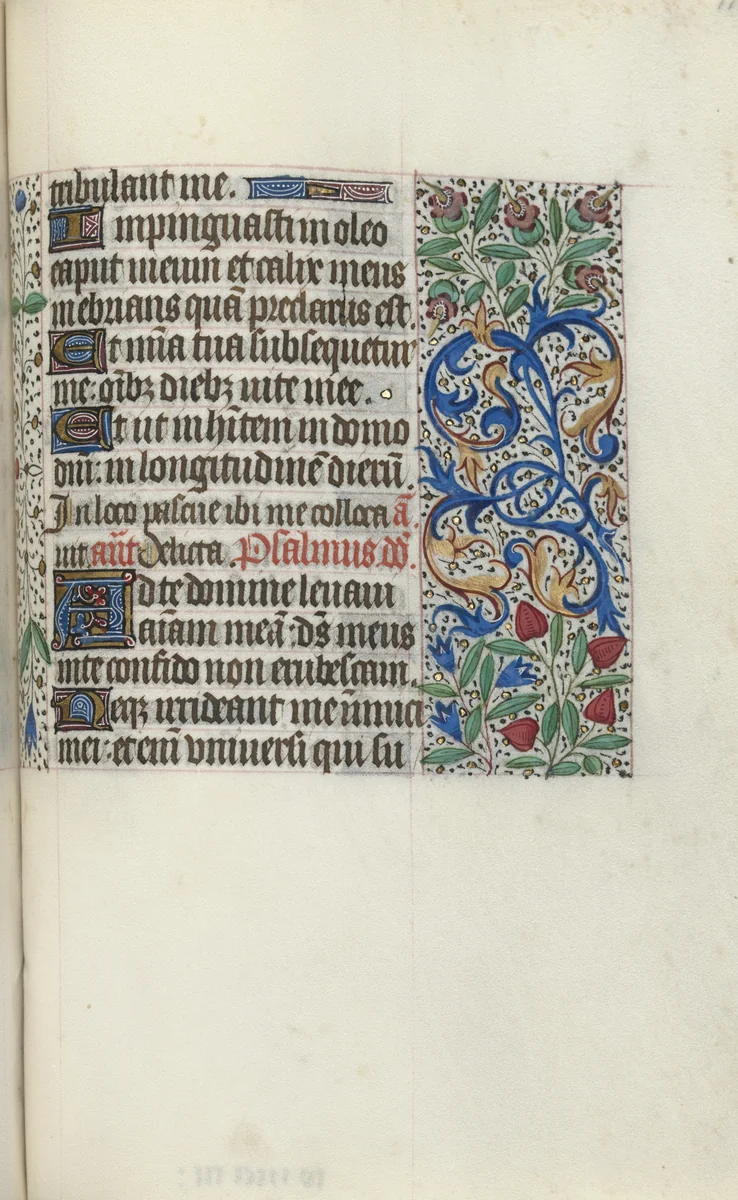 tribulant me.
Impinguasti in oleo
caput meum et calix meus
inebrians quā preclarus est.
Et mīa tua subsequetur
me: oībꝫ diebꝫ uite mee.
Et ut inhītem in domo
dnī: in longitudinē dierū.
In loco pascue ibi me colloca ā.
uit añt Delicta. Psalmus dd̄.
Ad te domine leuaui
aīam meā: ds̄ meus
in te confido non erubescam.
Neqꝫ irrideant me inimici
mei: et enī vniuersi qui su